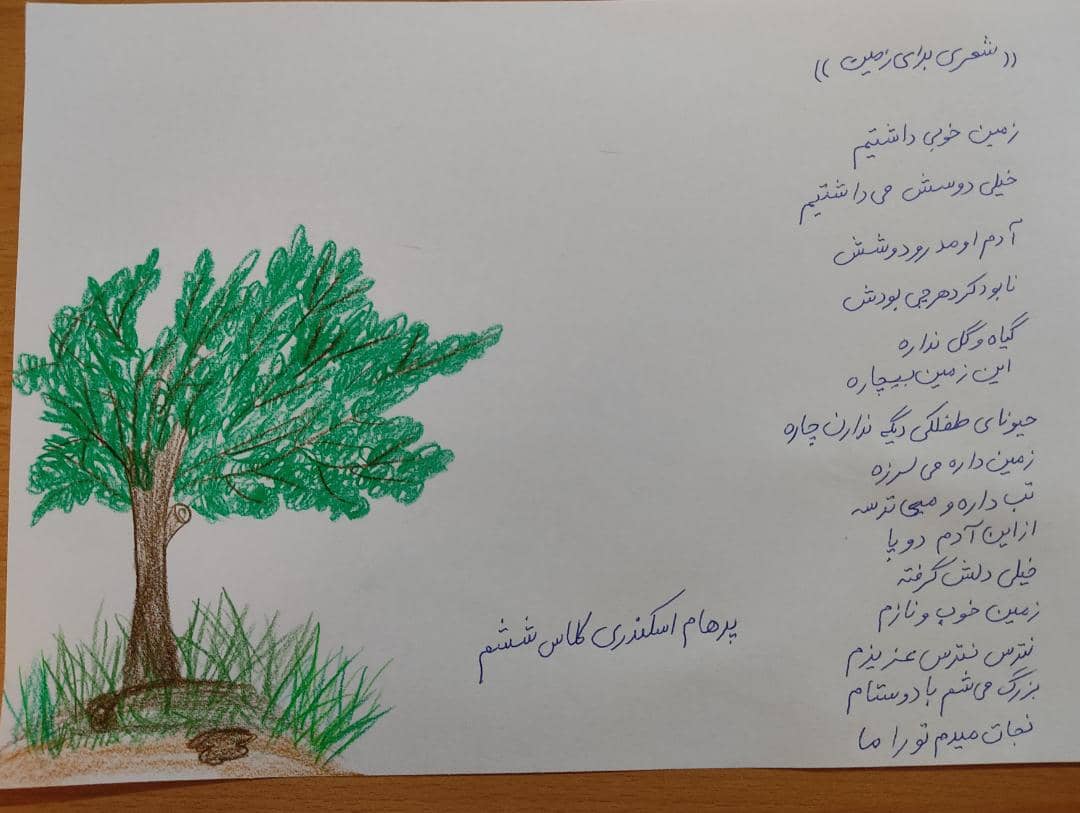 ((شعری برای زمین))
زمین خوبی داشتیم
خیلی دوسش می داشتیم
آدم اومد رو دوشش
نابود کرد هرچی بودش
گیاه و گل نداره
این زمین بیچاره
حیونای طفلکی دیگه ندارن چاره
زمین داره می لرزه
تب داره و میی ترسه
از این آدم دو پا
خیلی دلش گرفته
زمین خوب و نازم
نترس نترس عزیزم
بزرگ می شم با دوستام
نجات میدم تو را ما
پرهام اسکندری کلاس ششم